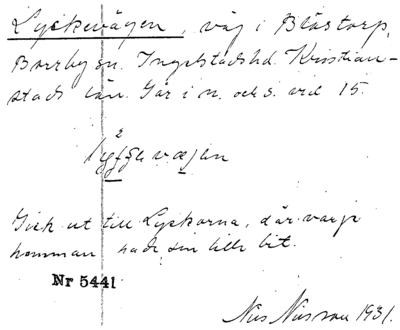 Lyckevägen, väg i Blästorp,
Borrby sn. Ingelstads hd. Kristian-
stads län. Går i n. och s. vid 15.
vœjen
Gick ut till Lyckorna, där varje
homman hade sin lille bit.
Nr 5441
Nils Nilsson 1931.